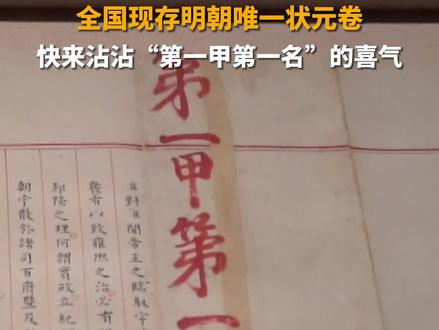 全国现存明朝唯一状元卷
快来沾沾“第一甲第一名”的喜气
第一甲第一
臣對臣聞帝王之臨馭宇
必有
幾有以致雍熈之治
郅隆之理何謂實政立紀
朝宁散於諸司百府暨及